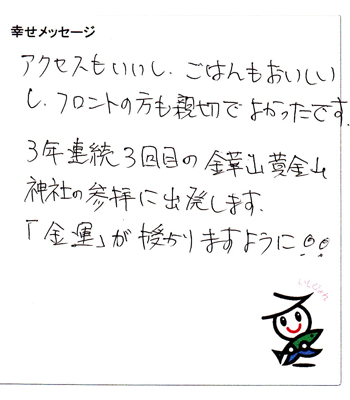 幸せメッセージ
アクセスもいいし、ごはんもおいしい
し、フロントの方も親切でよかったです。
3年連続3回目の金華山黄金山
神社の参拝に出発します。
「金運」が授かりますように!!